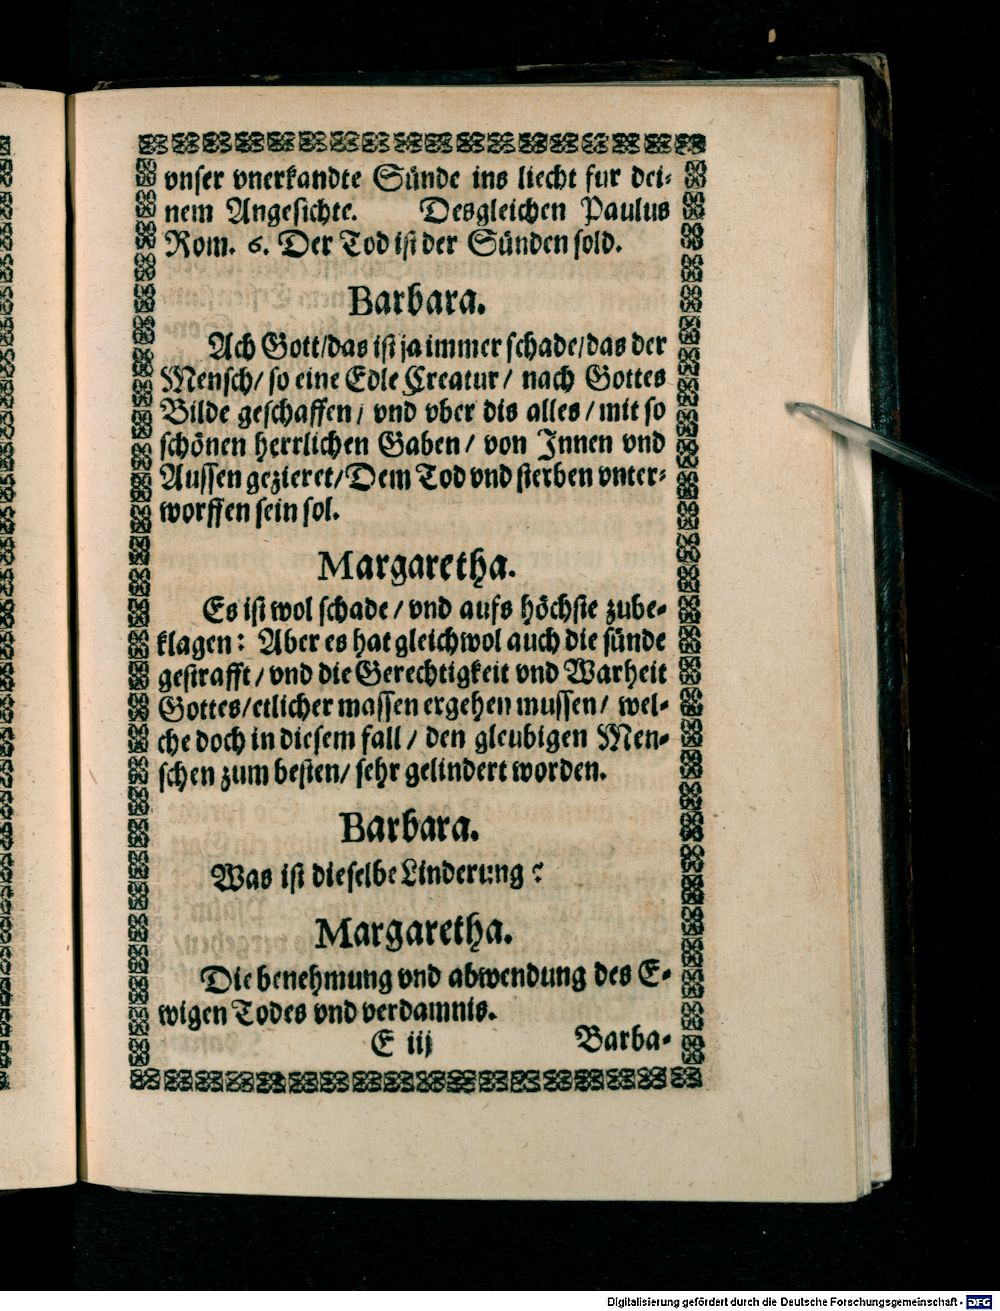 vnser vnerkandte Sünde ins liecht fur dei-
nem Angesichte. Desgleichen Paulus
Rom. 6. Der Tod ist der Sünden sold.
Barbara.
Ach Gott/das ist ja immer schade/das der
Mensch/ so eine Edle Creatur/ nach Gottes
Bilde geschaffen/ vnd vber dis alles/ mit so
schönen herrlichen Gaben/ von Innen vnd
Aussen gezieret/Dem Tod vnd sterben vnter-
worffen sein sol.
Margaretha.
Es ist wol schade/ vnd aufs höchste zube-
klagen: Aber es hat gleichwol auch die sünde
gestrafft/ vnd die Gerechtigkeit vnd Warheit
Gottes/etlicher massen ergehen mussen/ wel-
che doch in diesem fall/ den gleubigen Men-
schen zum besten/ sehr gelindert worden.
Barbara.
Was ist dieselbe Linderung?
Margaretha.
Die benehmung vnd abwendung des E-
wigen Todes vnd verdamnis.
E iij Barba-
Digitalisierung gefördert durch die Deutsche Forschungsgemeinschaft - DFG